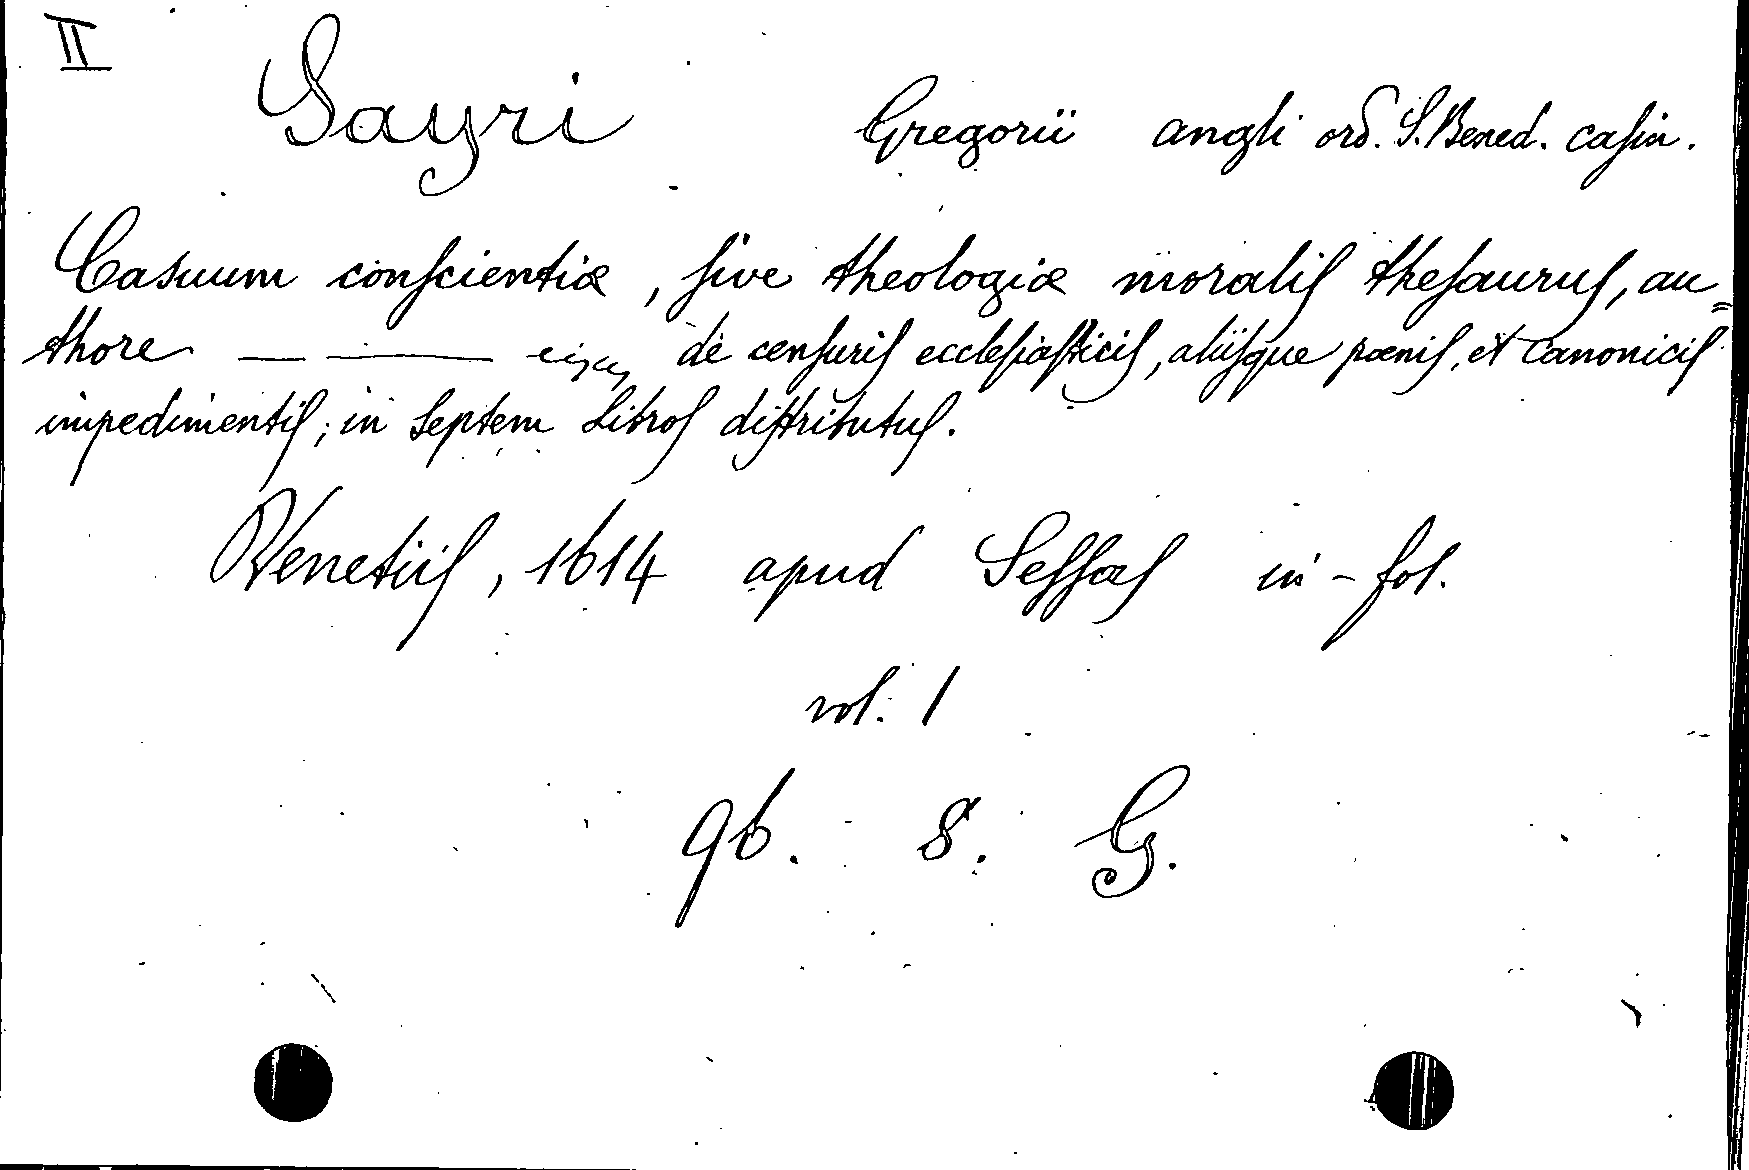 II
Sayri Gregorii angli ord. S. Bened. casin.
Casuum conscientiæ, sive theologiæ moralis thesaurus, au=
thore — — de censuris ecclesiasticis, aliisque pœnis, et canonicis
impedimentis; in septem libros distributus.
Venetiis, 1614 apud Sessas in-fol.
vol. 1
96. 8. G.